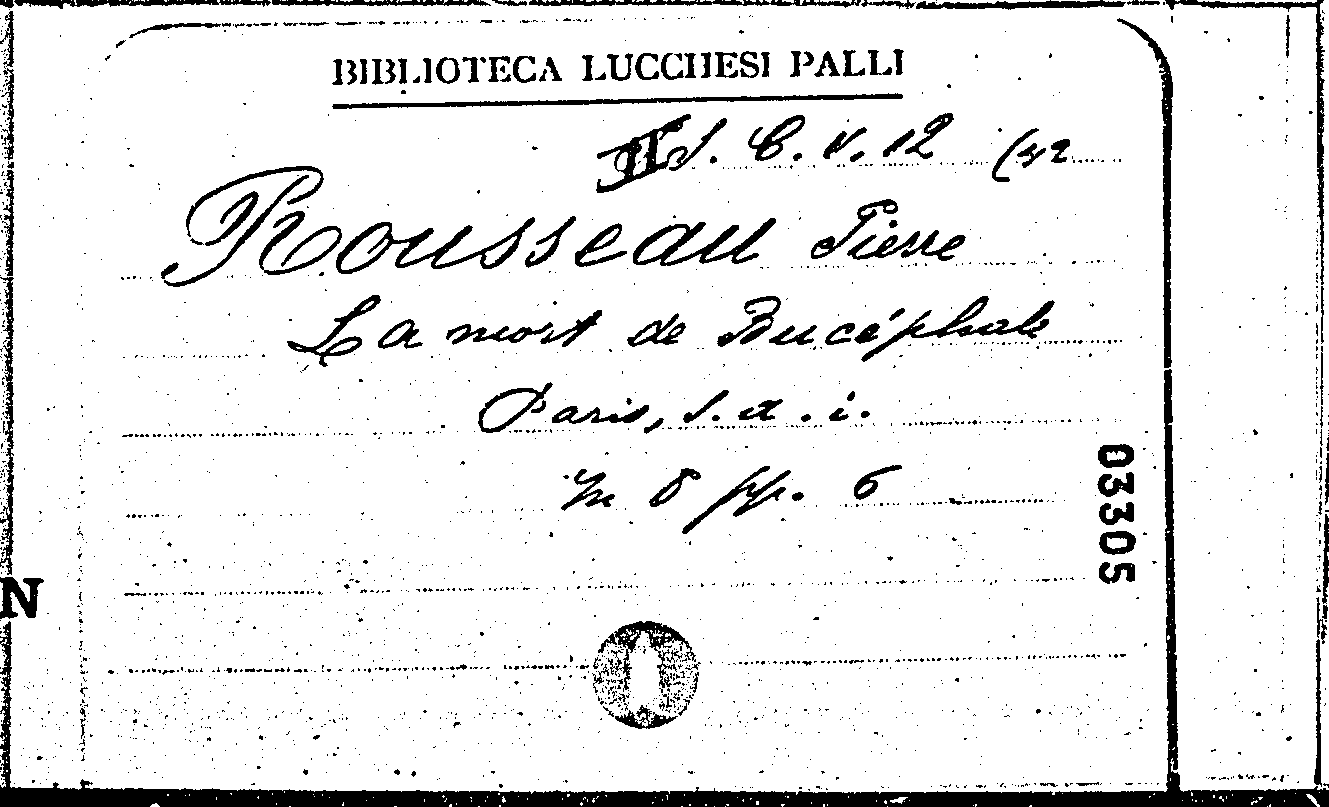 BIBLIOTECA LUCCHESI PALLI
S. C. V. 12 (42
Rousseau Pierre
La mort de Bucéphale
Paris, s. a. i.
In 8 pp. 6
03305
N